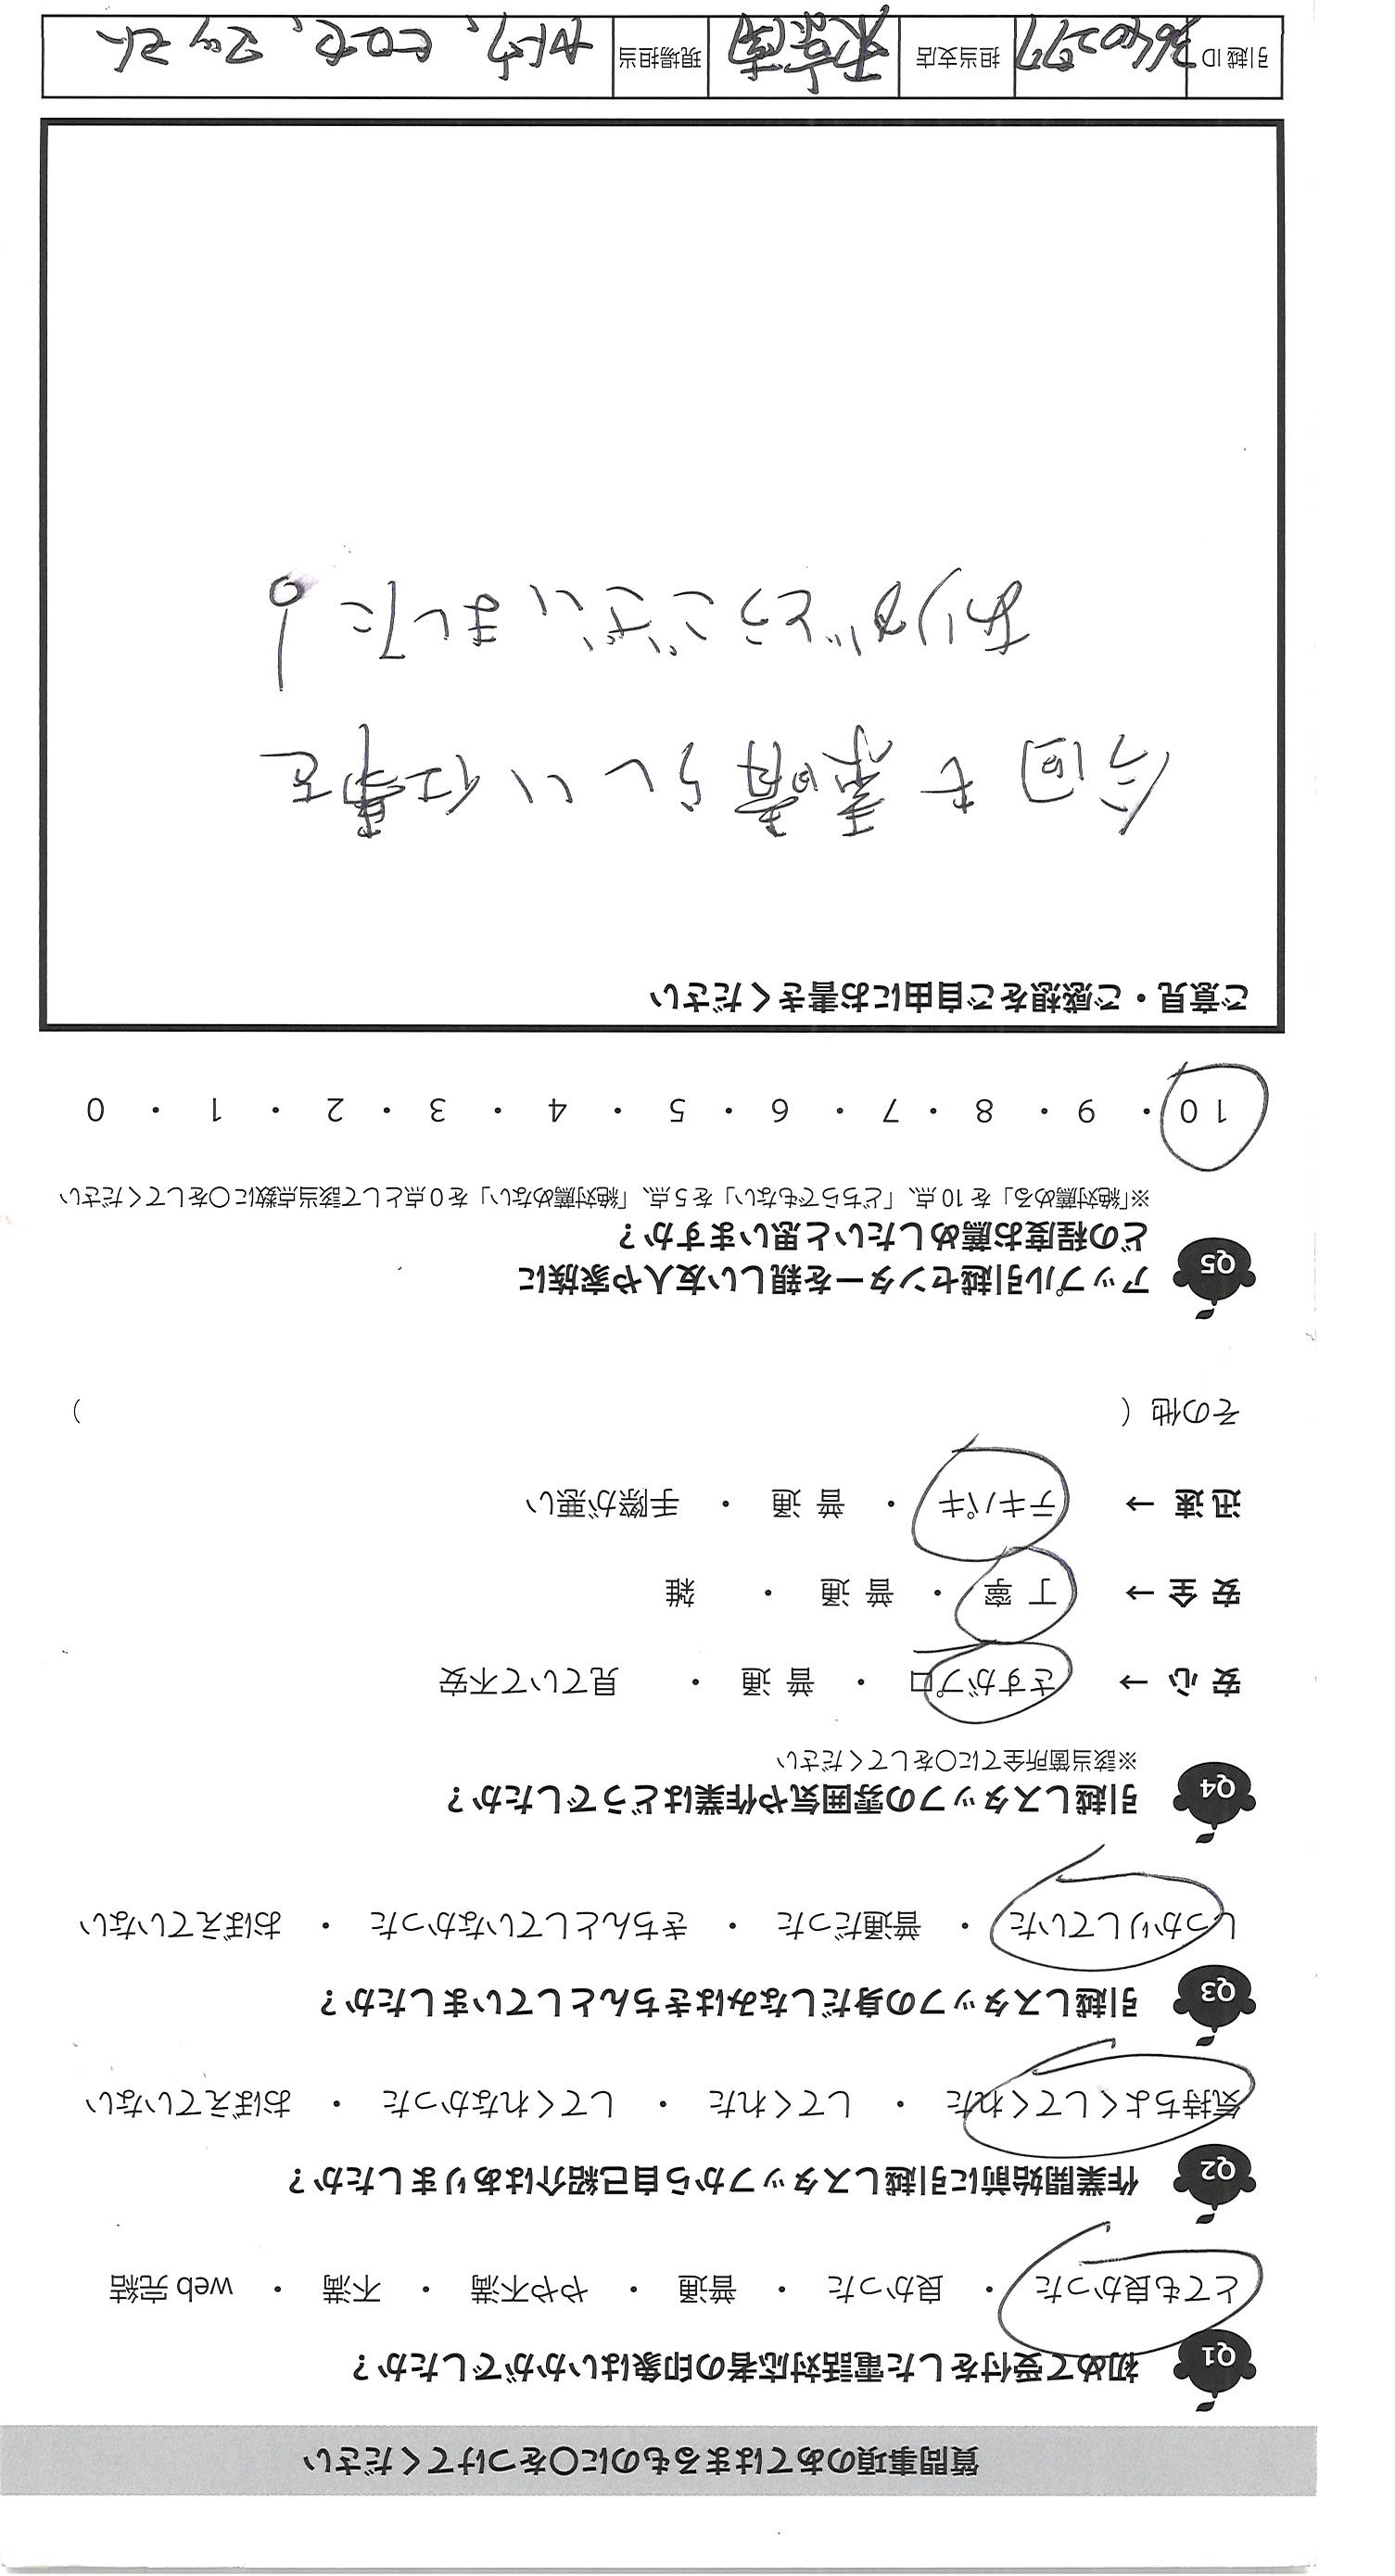 質問事項のあてはまるものに○をつけてください
Q1 初めて受付をした電話対応者の印象はいかがでしたか？
とても良かった ・ 良かった ・ 普通 ・ やや不満 ・ 不満 ・ web 完結
Q2 作業開始前に引越しスタッフから自己紹介はありましたか？
気持ちよくしてくれた ・ してくれた ・ してくれなかった ・ おぼえていない
Q3 引越しスタッフの身だしなみはきちんとしていましたか？
しっかりしていた ・ 普通だった ・ きちんとしていなかった ・ おぼえていない
Q4 引越しスタッフの雰囲気や作業はどうでしたか？
※該当箇所全てに○をしてください
安 心 → さすがプロ ・ 普 通 ・ 見ていて不安
安 全 → 丁 寧 ・ 普 通 ・ 雑
迅 速 → テキパキ ・ 普 通 ・ 手際が悪い
その他（ ）
Q5 アップル引越センターを親しい友人や家族に
どの程度お薦めしたいと思いますか？
※「絶対薦める」を 10 点、「どちらでもない」を 5 点、「絶対薦めない」を 0 点として該当点数に○をしてください
10 ・ 9 ・ 8 ・ 7 ・ 6 ・ 5 ・ 4 ・ 3 ・ 2 ・ 1 ・ 0
ご意見・ご感想をご自由にお書きください
今回も素晴らしい仕事を
ありがとうございました！
引越 ID 3640277 担当支店 東京南 現場担当 ヒロセ、